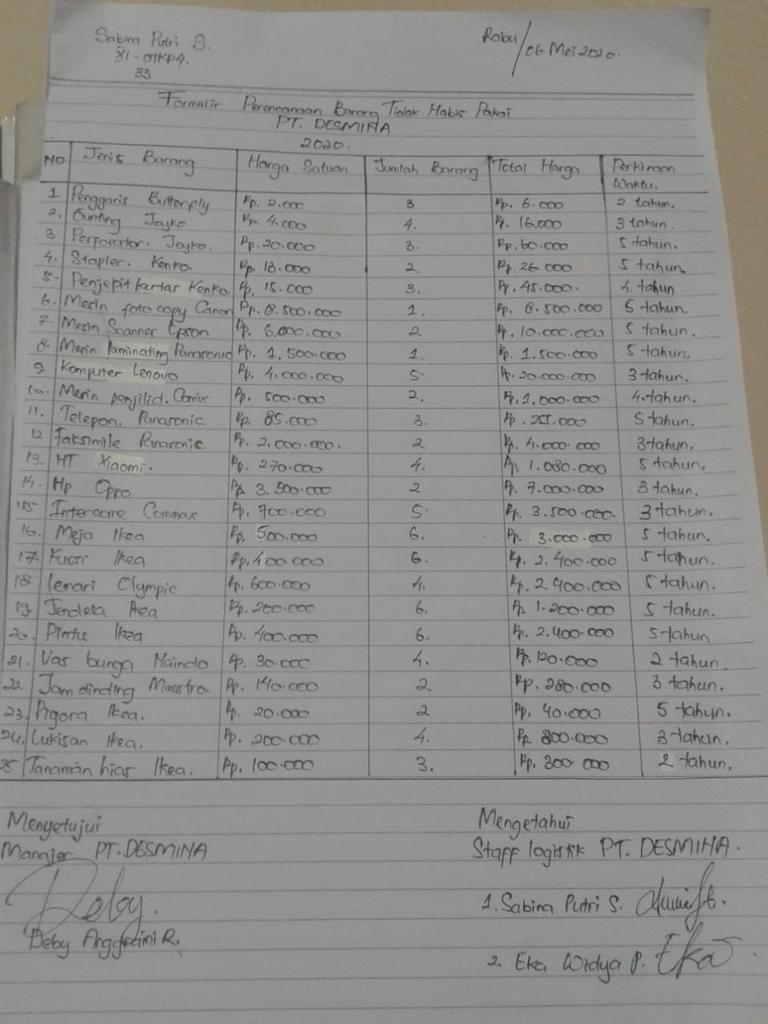 Sabina Putri S.
XI-OTKP4.
33
Rabu/06 Mei 2020.
Formulir Perencanaan Barang Tidak Habis Pakai
PT. DESMINA
2020.
NO Jenis Barang Harga Satuan Jumlah Barang Total Harga Perkiraan Waktu.
1 Penggaris Butterply Rp. 2.000 3 Rp. 6.000 2 tahun.
2. Gunting Joyko Rp. 4.000 4. Rp. 16.000 3 tahun.
3 Perforator. Joyko. Rp. 20.000 3. Rp. 60.000 5 tahun.
4. Stapler. Kenko. Rp. 13.000 2. Rp. 26.000 5 tahun.
5. Penjepit kertas Kenko. Rp. 15.000 3. Rp. 45.000. 4 tahun
6. Mesin foto copy Canon Rp. 8.500.000 1. Rp. 8.500.000 5 tahun
7. Mesin Scanner Epson Rp. 5.000.000 2 Rp. 10.000.000 5 tahun.
8. Mesin laminating Panasonic Rp. 1.500.000 1. Rp. 1.500.000 5 tahun.
9. Komputer Lenovo Rp. 4.000.000 5 Rp. 20.000.000 3 tahun.
10. Mesin penjilid. Rp. 500.000 2. Rp. 1.000.000 4 tahun.
11. Telepon. Panasonic Rp. 85.000 3. Rp. 255.000 5 tahun.
12 Faksimile Panasonic Rp. 2.000.000. 2 Rp. 4.000.000 3 tahun.
13. HT Xiaomi. Rp. 270.000 4. Rp. 1.080.000 5 tahun.
14. Hp Oppo Rp 3.500.000 2 Rp. 7.000.000 3 tahun.
15 Intercome Commax Rp. 700.000 5 Rp. 3.500.000. 3 tahun.
16. Meja Ikea Rp. 500.000 6. Rp. 3.000.000 5 tahun.
17. Kursi Ikea Rp. 400.000 6. Rp. 2.400.000 5 tahun.
18 lemari Olympic Rp. 600.000 4. Rp. 2.400.000 5 tahun.
19 Jendela Ikea Rp. 200.000 6. Rp. 1.200.000 5 tahun.
20. Pintu Ikea Rp. 400.000 6. Rp. 2.400.000 5 tahun
21. Vas bunga Naindo Rp. 30.000 4. Rp. 120.000 2 tahun.
22. Jam dinding Maestro. Rp. 140.000 2. Rp. 280.000 3 tahun.
23. Pigora Ikea. Rp. 20.000 2 Rp. 40.000 5 tahun.
24. Lukisan Ikea. Rp. 200.000 4. Rp 800.000 3 tahun.
25 Tanaman hias Ikea. Rp. 100.000 3. Rp. 300 000 2 tahun.
Menyetujui
Manajer PT. DESMINA
Deby.
Deby Anggraini R.
Mengetahui
Staff logistik PT. DESMINA.
1. Sabina Putri S.
2. Eka Widya P. Eka